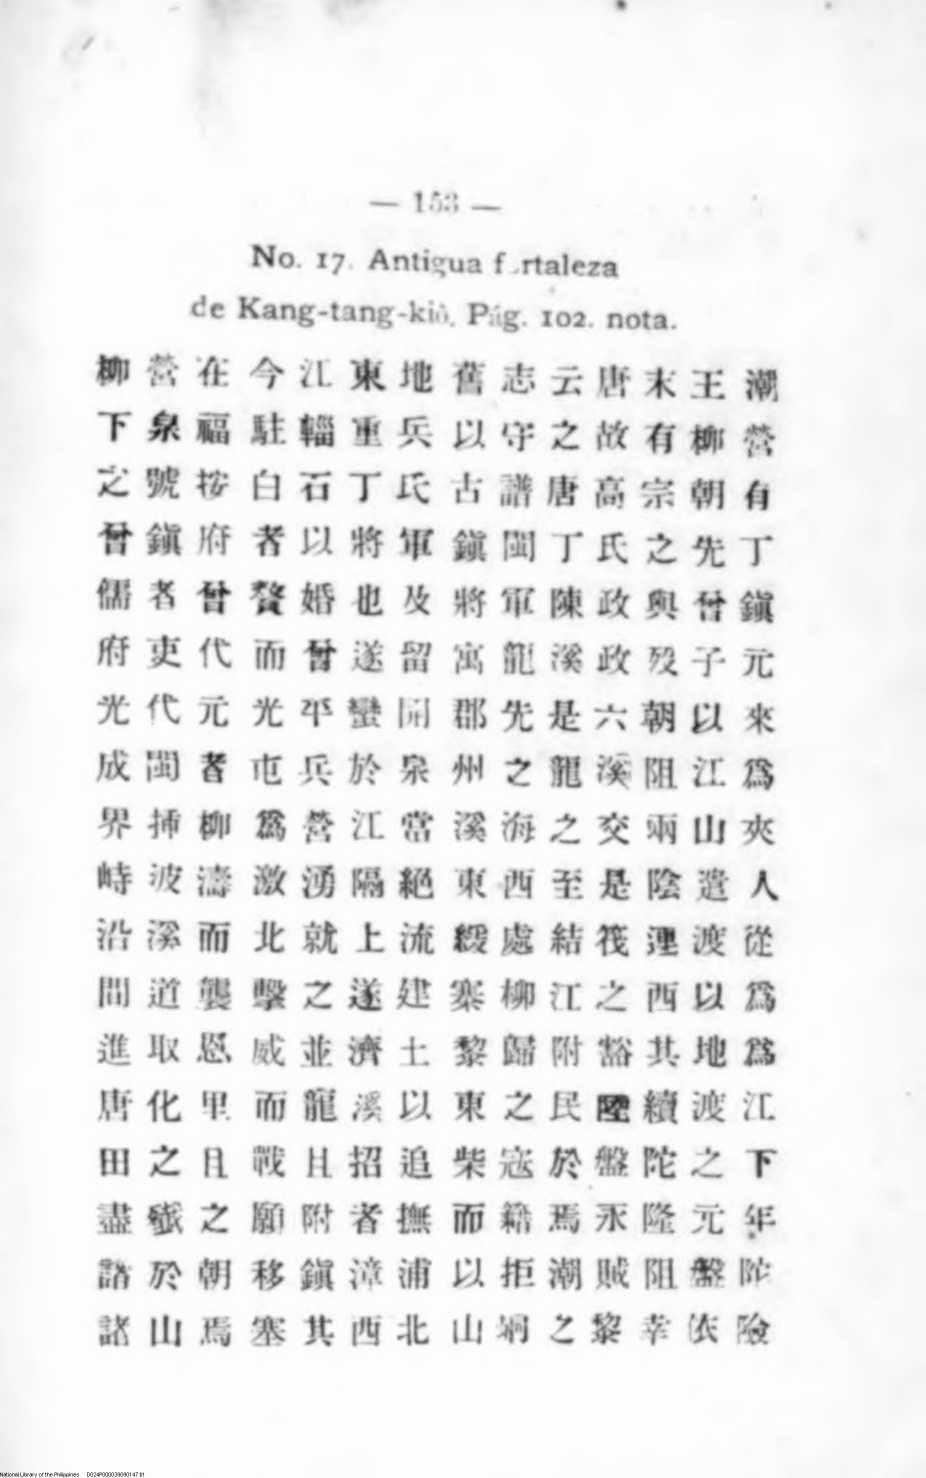 — 153 —
No. 17. Antigua fortaleza
de Kang-tang-kiò. Pág. 102. nota.
柳營在今江東地舊志云唐末王潮
下泉福駐輜重兵以守之故有柳營
之號按白石丁氏古譜唐高宗朝有
曾鎭府者以將軍鎭閩丁氏之先丁
儒者曾贅婚也及將軍陳政與曾鎭
府吏代而曾遂留寓龍溪政歿子元
光代元光平蠻開郡先是六朝以來
成閩者屯兵於泉州之龍溪阻江爲
界揷柳爲營江當溪海之交兩山夾
峙波濤激湧隔絕東西至是陰遣人
沿溪而北就上流緩處結筏渡從
間道襲擊之遂建寨柳江之西以爲
進取恩威並濟土黎歸附豁其地爲
唐化里而龍溪以東之民陸續渡江
田之且戰且招追柴寇於盤陀之下
盡之願附者撫而籍焉永隆元年
諸於朝移鎭漳浦以拒潮賊阻盤陀
諸山焉塞其西北山峒之黎幸依險